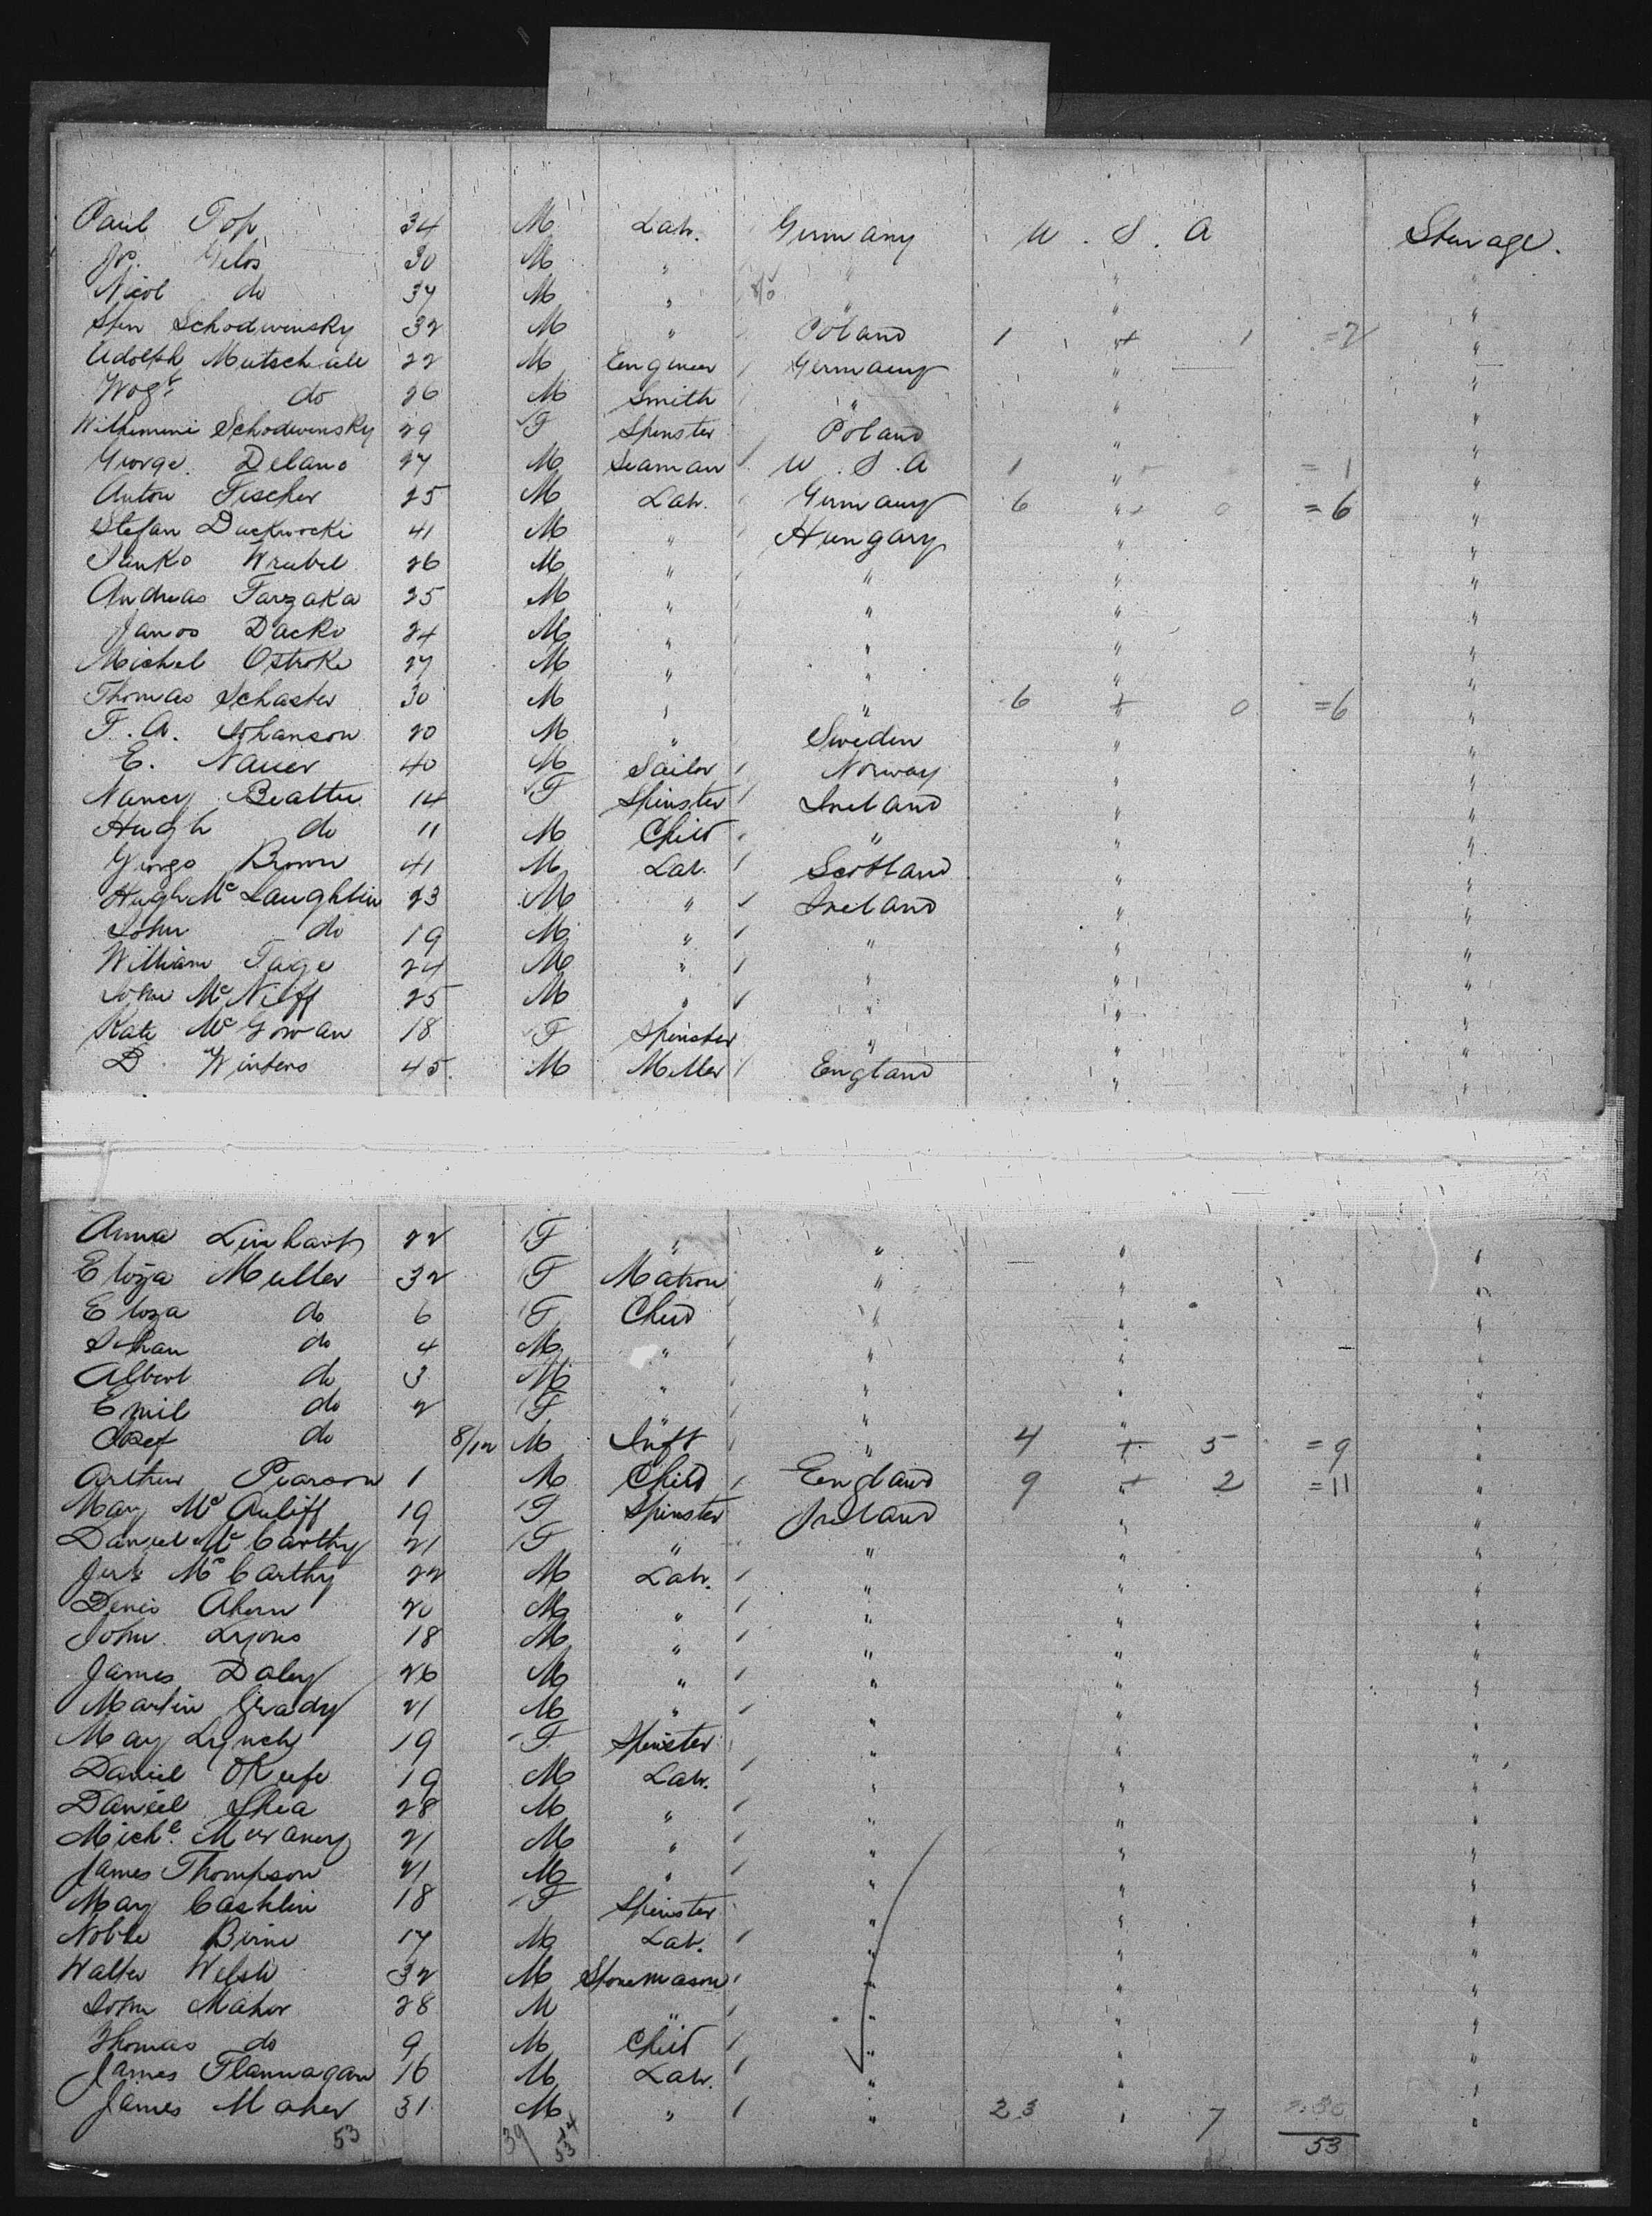 Paul Top 34 M Lab. Germany U. S. A Sterage.
Jos. Gelos 30 M " " " "
Nicol do 34 M " " " "
Schodwensky 32 M " Poland 1 + 1 =2 "
Adolph Mutschall 22 M Eengineer Germany " "
do 26 M Smith " " "
Schodwensky 29 F Spinster Poland " "
George Delano 27 M Seaman U. S. A 1 " = 1 "
Anton Fischer 25 M Lab. Germany 6 " 0 = 6 "
Stefan 41 M " Hungary " "
Wrubel 26 M " " " "
Andreas Farzaka 25 M " " " "
Janos Dacko 24 M " " " "
Michel Ostroko 27 M " " " "
Thomas Schaster 30 M " " 6 + 0 =6 "
F. A. Johanson 20 M " Sweden " "
E. Nauer 40 M Sailor Norway " "
Nancy Beattie 14 F Spinster Ireland " "
Hugh do 11 M Child " " "
George Brown 41 M Lab. Scotland " "
Hugh Mc Laughlin 23 M " Ireland " "
John do 19 M " " " "
William Tage 24 M " " " "
John Mc Niff 25 M " " " "
Kate Mc Gowan 18 F Spinster " " "
D. Winters 45 M Miller England " "
Anna Linhart 22 F " " " "
Eloza Muller 32 F Matron " " "
Eloza do 6 F Child " " "
Johan do 4 M " " " "
Albert do 3 M " " " "
Emil do 2 F " " " "
Josef do 8/12 M Inft " 4 + 5 = 9 "
Arthur Pearson 1 M Child England 9 + 2 = 11 "
May Mc Auliff 19 F Spinster Ireland " "
Daniel Mc Carthy 21 F " " " "
Mc Carthy 22 M Lab. " " "
Denis Ahern 20 M " " " "
John Lyons 18 M " " " "
James Daley 26 M " " " "
Martin Grady 21 M " " " "
May Lynch 19 F Spinster " " "
Daniel OKeefe 19 M Lab. " " "
Daniel Shea 28 M " " " "
Michl. 21 M " " " "
James Thompson 21 M " " " "
May Cashlin 18 F Spinster " " "
Noble Birne 17 M Lab. " " "
Walter Welsh 32 M Stonemason " " "
John Maher 28 M " " " "
Thomas do 9 M Child " " "
James Flannagan 16 M Lab. " " "
James Maher 31 M " " 23 " 7 = 30 "
53 39 14 53
53